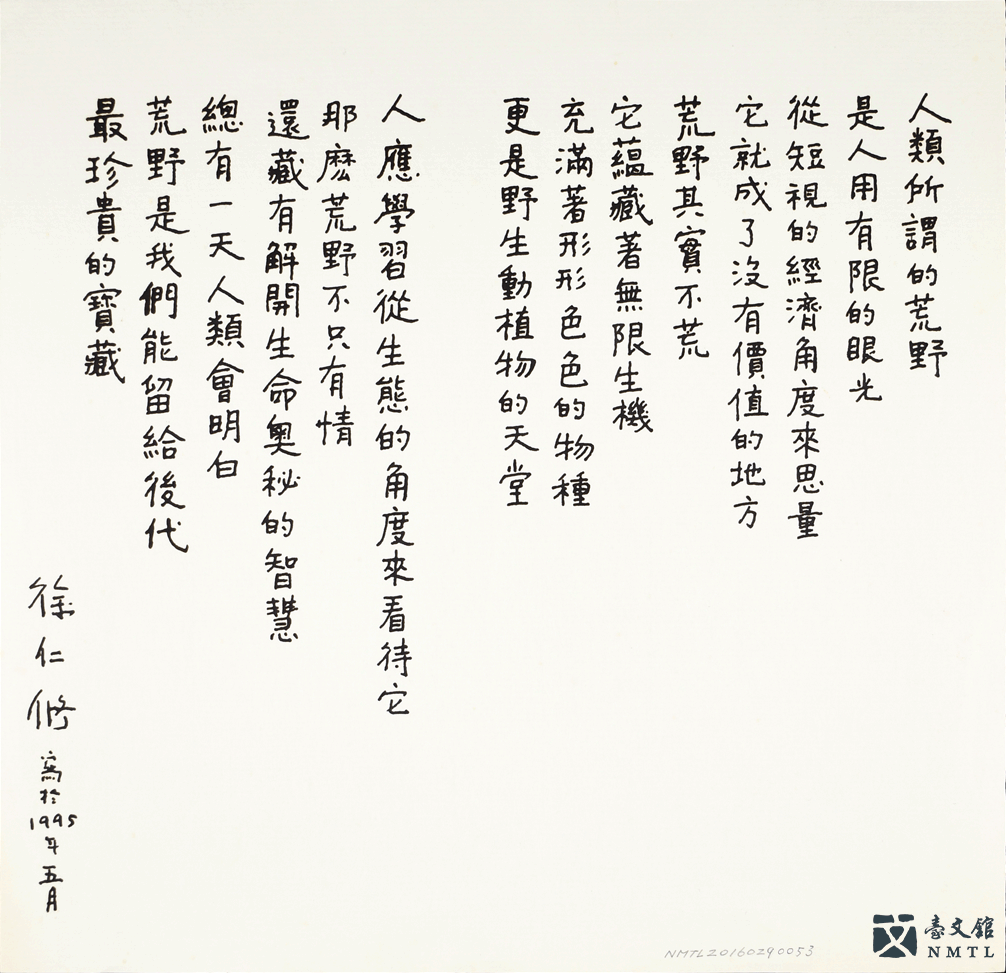 人類所謂的荒野
是人用有限的眼光
從短視的經濟角度來思量
它就成了沒有價值的地方
荒野其實不荒
它蘊藏著無限生機
充滿著形形色色的物種
更是野生動植物的天堂
人應學習從生態的角度來看待它
那麽荒野不只有情
還藏有解開生命奧秘的智慧
總有一天人類會明白
荒野是我們能留給後代
最珍貴的寶藏
徐仁修 寫於1995年五月
NMTL20160290053
臺文館
NMTL